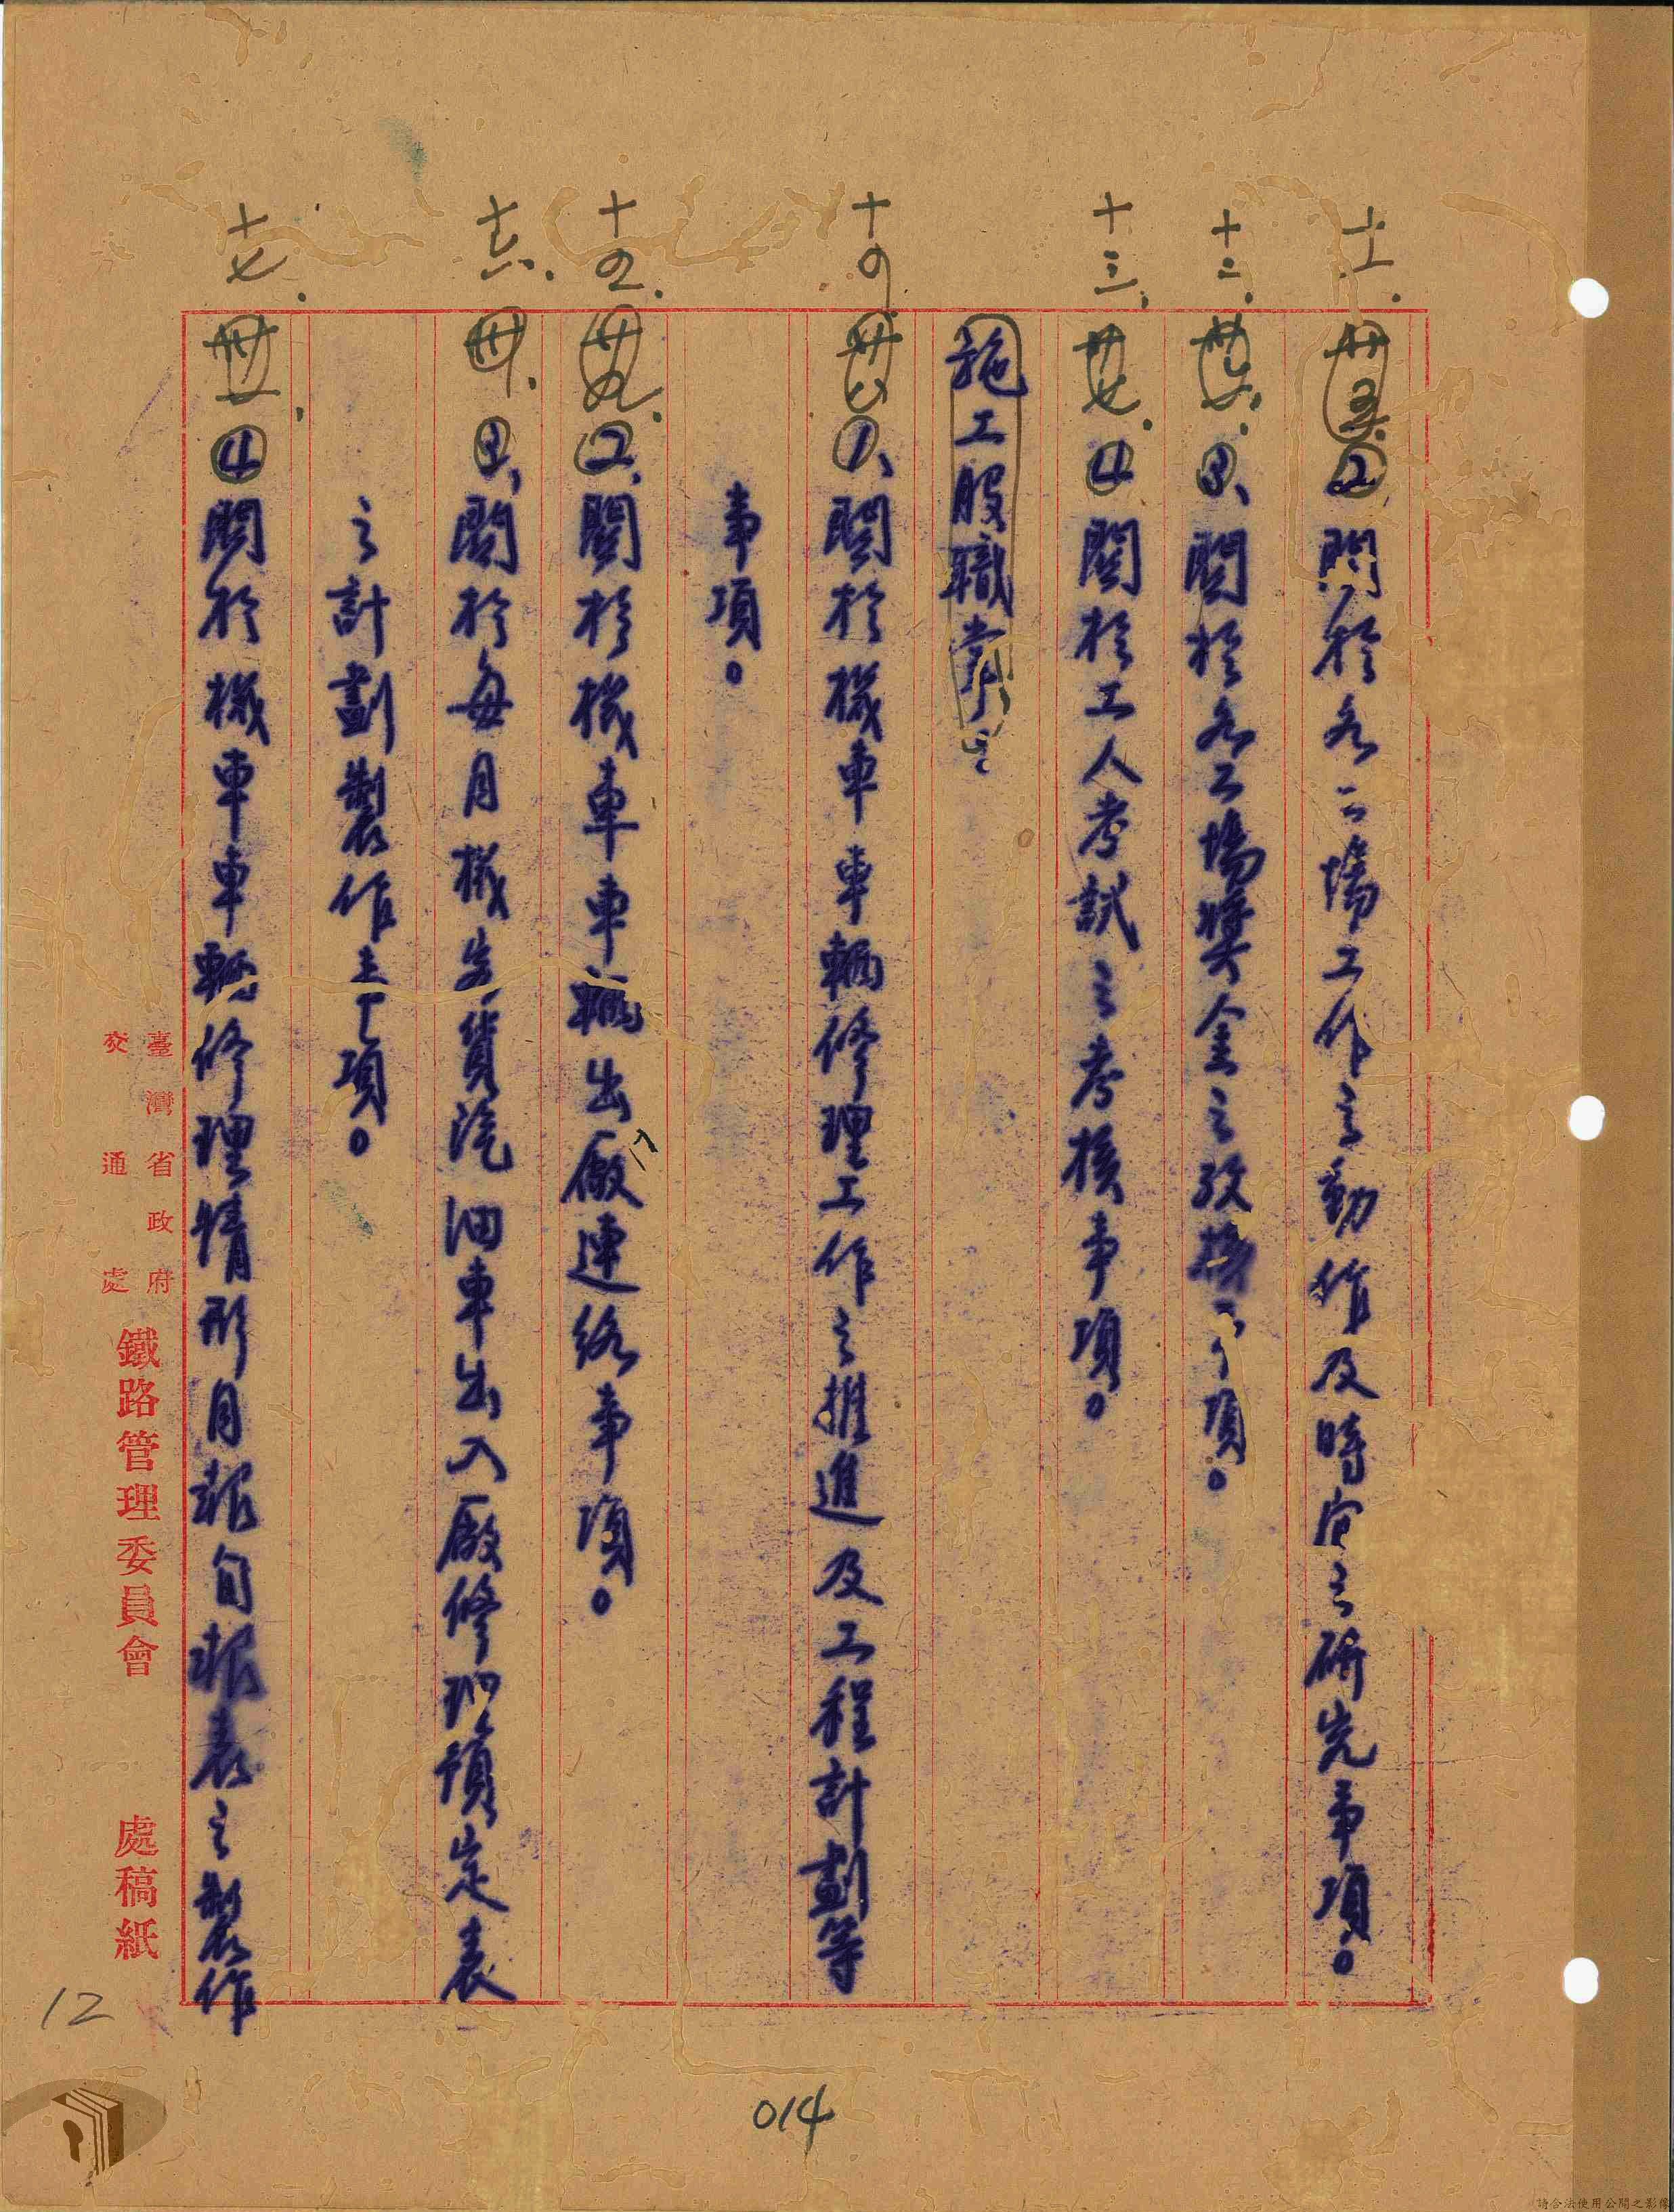 十一. 廿五. ②關於各工場工作之動作及時間之研究事項。
十二. 廿六. ③、關於各工場獎金之攷核事項。
十三. 廿七. ④關於工人考試之考核事項。
施工股職掌:
十四. 廿八 ①、關於機車車輛修理工作之推進及工程計劃等
事項。
廿九. ②、關於機車車輛出廠連絡事項。
十六. 卅. ③、關於每月機客貨汽油車出入廠修理預定表
之計劃製作之事項。
十七. 卅一. ④關於機車車輛修理情形月報旬報表之製作
臺灣省政府
交通處
鐵路管理委員會 處稿紙
12
014
請合法使用公開之影像